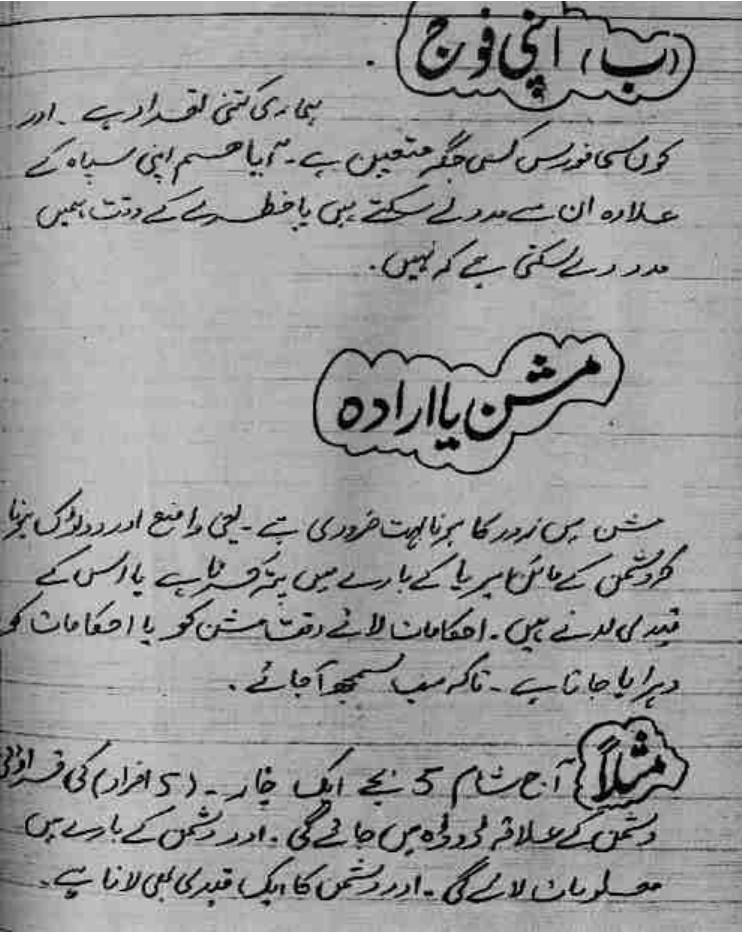 (ب) اپنی فوج
ہماری کتنی تعداد ہے ۔ اور
کون سی فورس کس جگہ متعین ہے ۔ آیا ہم اپنی سپاہ کے
علاوہ ان سے مدد لے سکتے ہیں یا خطرے کے وقت ہمیں
مدد دے سکتی ہے کہ نہیں ۔
مشن یا ارادہ
مشن میں زور کا ہونا بہت ضروری ہے ۔ یعنی واضع اور دوٹوک ہونا
کہ دشمن کے ایریا کے بارے میں پتہ کرنا ہے یا اس کے
قیدی لانے ہیں ۔ احکامات لاتے وقت مشن کو یا احکامات کو
دہرایا جاتا ہے ۔ تاکہ سب سمجھ آجائے ۔
مثلاً آج شام 5 بجے ایک چار ۔ (5 افراد) کی
دشمن کے علاقہ میں جائے گی ۔ اور دشمن کے بارے میں
معلومات لائے گی ۔ اور دشمن کا ایک قیدی بھی لانا ہے ۔